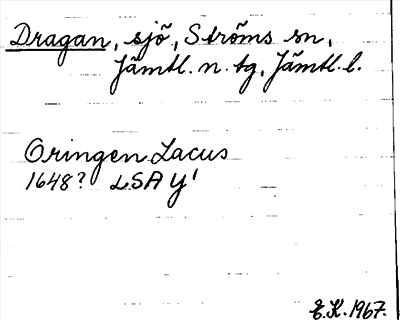 Dragan, sjö, Ströms sn,
Jämtl. n. tg, Jämtl. l.
Oringen Lacus
1648? LSA Y¹
E.K. 1967.